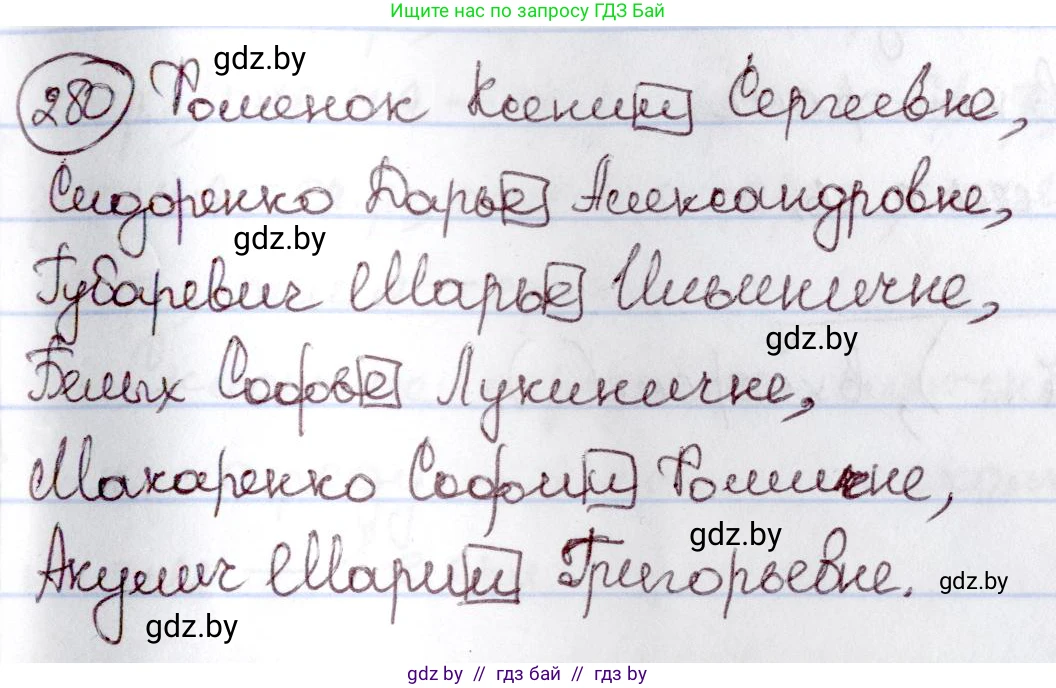 Ищите нас по запросу ГДЗ Бай
gdz.by
280 Роменок Ксении Сергеевне,
Сидоренко Дарье Александровне,
gdz.by
Губаревич Марье Ильиничне,
gdz.by
Белых Софье Лукиничне,
Макаренко Софии Фоминичне,
gdz.by
Акулич Марии Григорьевне.
gdz.by
gdz.by
gdz.by // гдз бай // гдз by